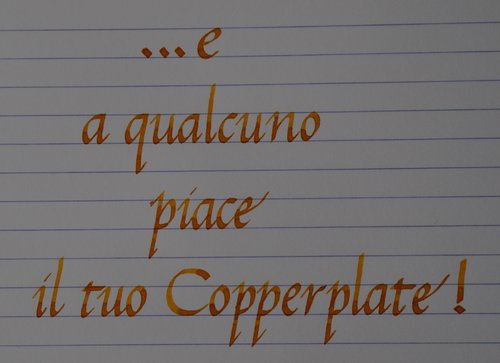 ...e
a qualcuno
piace
il tuo Copperplate!